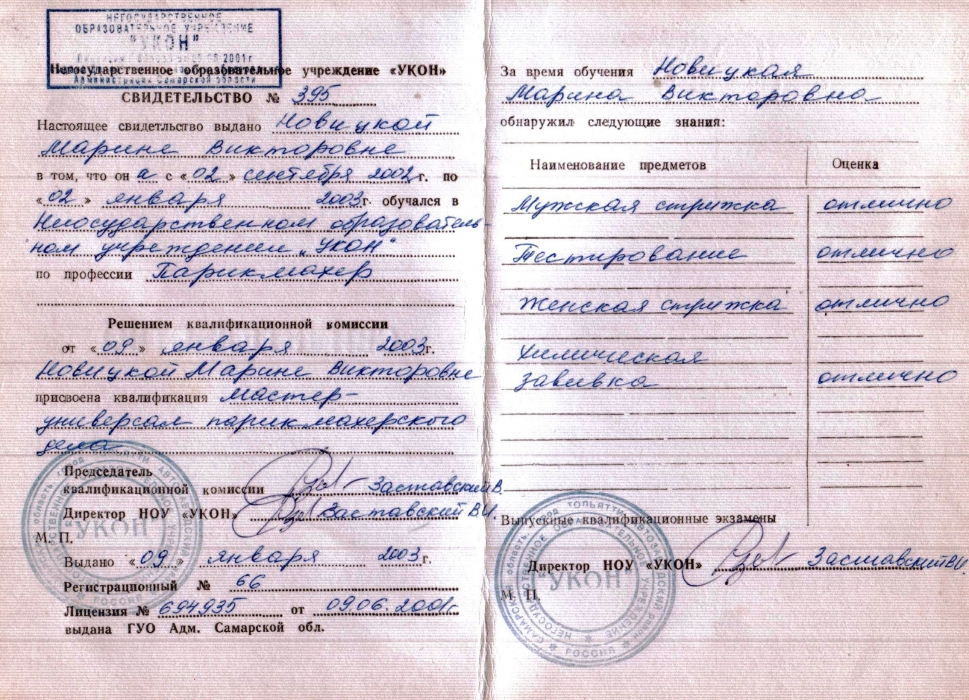 НЕГОСУДАРСТВЕННОЕ
ОБРАЗОВАТЕЛЬНОЕ УЧРЕЖДЕНИЕ
"УКОН"
2001г
Администрации Самарской области
Негосударственное образовательное учреждение «УКОН»
СВИДЕТЕЛЬСТВО № 395
Настоящее свидетльство выдано Новицкой
Марине Викторовне
в том, что он а с «02» сентября 2002 г. по
«02» января 2003 г. обучался в
Негосударственном образователь-
ном учреждении „УКОН"
по профессии Парикмахер
Решением квалификационной комиссии
от «09» января 2003 г.
Новицкой Марине Викторовне
присвоена квалификация Мастер-
универсал парикмахерского
дела
Председатель
квалификационной комиссии Заставский В.
Директор НОУ «УКОН» Заставский В.И.
М. П.
Выдано «09» января 2003 г.
Регистрационный № 66
Лицензия № 694935 от 09.06.2001г.
выдана ГУО Адм. Самарской обл.
"УКОН"
За время обучения Новицкая
Марина Викторовна
обнаружил следующие знания:
Наименование предметов Оценка
Мужская стрижка отлично
Тестирование отлично
Женская стрижка отлично
Химическая
завивка отлично
Выпускные квалификационные экзамены
Директор НОУ «УКОН» Заставский В.И.
М. П.
"УКОН"
РОССИЯ